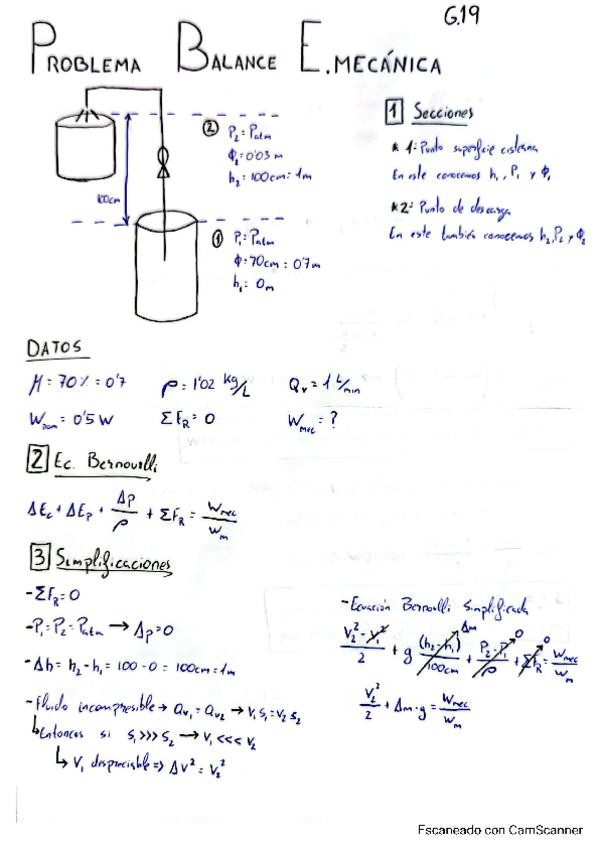 G.19
PROBLEMA BALANCE E. MECÁNICA
② P₂ = Patm
ϕ₂ = 0'03 m
h₂ = 100cm = 1m
100cm
① P₁ = Patm
ϕ = 70cm = 0'7m
h₁ = 0m
1 Secciones
* 1: Punto superficie cisterna
En este conocemos h₁, P₁ y ϕ₁
* 2: Punto de descarga
En este también conocemos h₂, P₂ y ϕ₂
DATOS
M = 70% = 0'7 ρ = 1'02 kg/L Qv = 1 L/min
W = 0'5 W ΣFR = 0 Wmec = ?
2 Ec. Bernouilli
ΔEc + ΔEp + Δp/ρ + ΣFR = Wmec/Wm
3 Simplificaciones
- ΣFR = 0
- P₁ = P₂ = Patm → Δp = 0
- Δh = h₂ - h₁ = 100 - 0 = 100cm = 1m
- Fluido incompresible → Qv₁ = Qv₂ → V₁ S₁ = V₂ S₂
↳ Entonces si S₁ >>> S₂ → V₁ <<< V₂
↳ V₁ despreciable => ΔV² = V₂²
- Ecuación Bernoulli Simplificada
(V₂² - V₁²)/2 + g (h₂ - h₁) 100cm 1m + (P₂ - P₁)/ρ 0 + ΣFR 0 = Wmec/Wm
V₂²/2 + 1m · g = Wmec/Wm
Escaneado con CamScanner